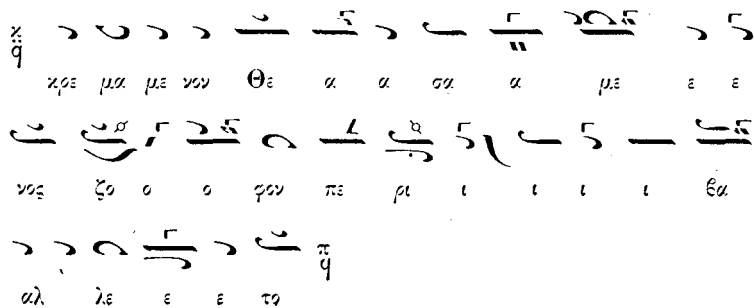 κρε μα με νον Θε α α σα α με ε ε
νος ζο ο ο φον πε ρι ι ι ι ι βα
αλ λε ε ε το